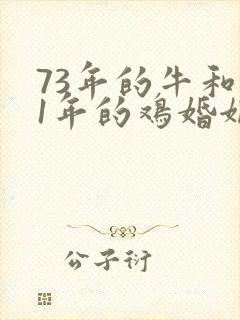 73年的牛和
1年的鸡婚
公子衍